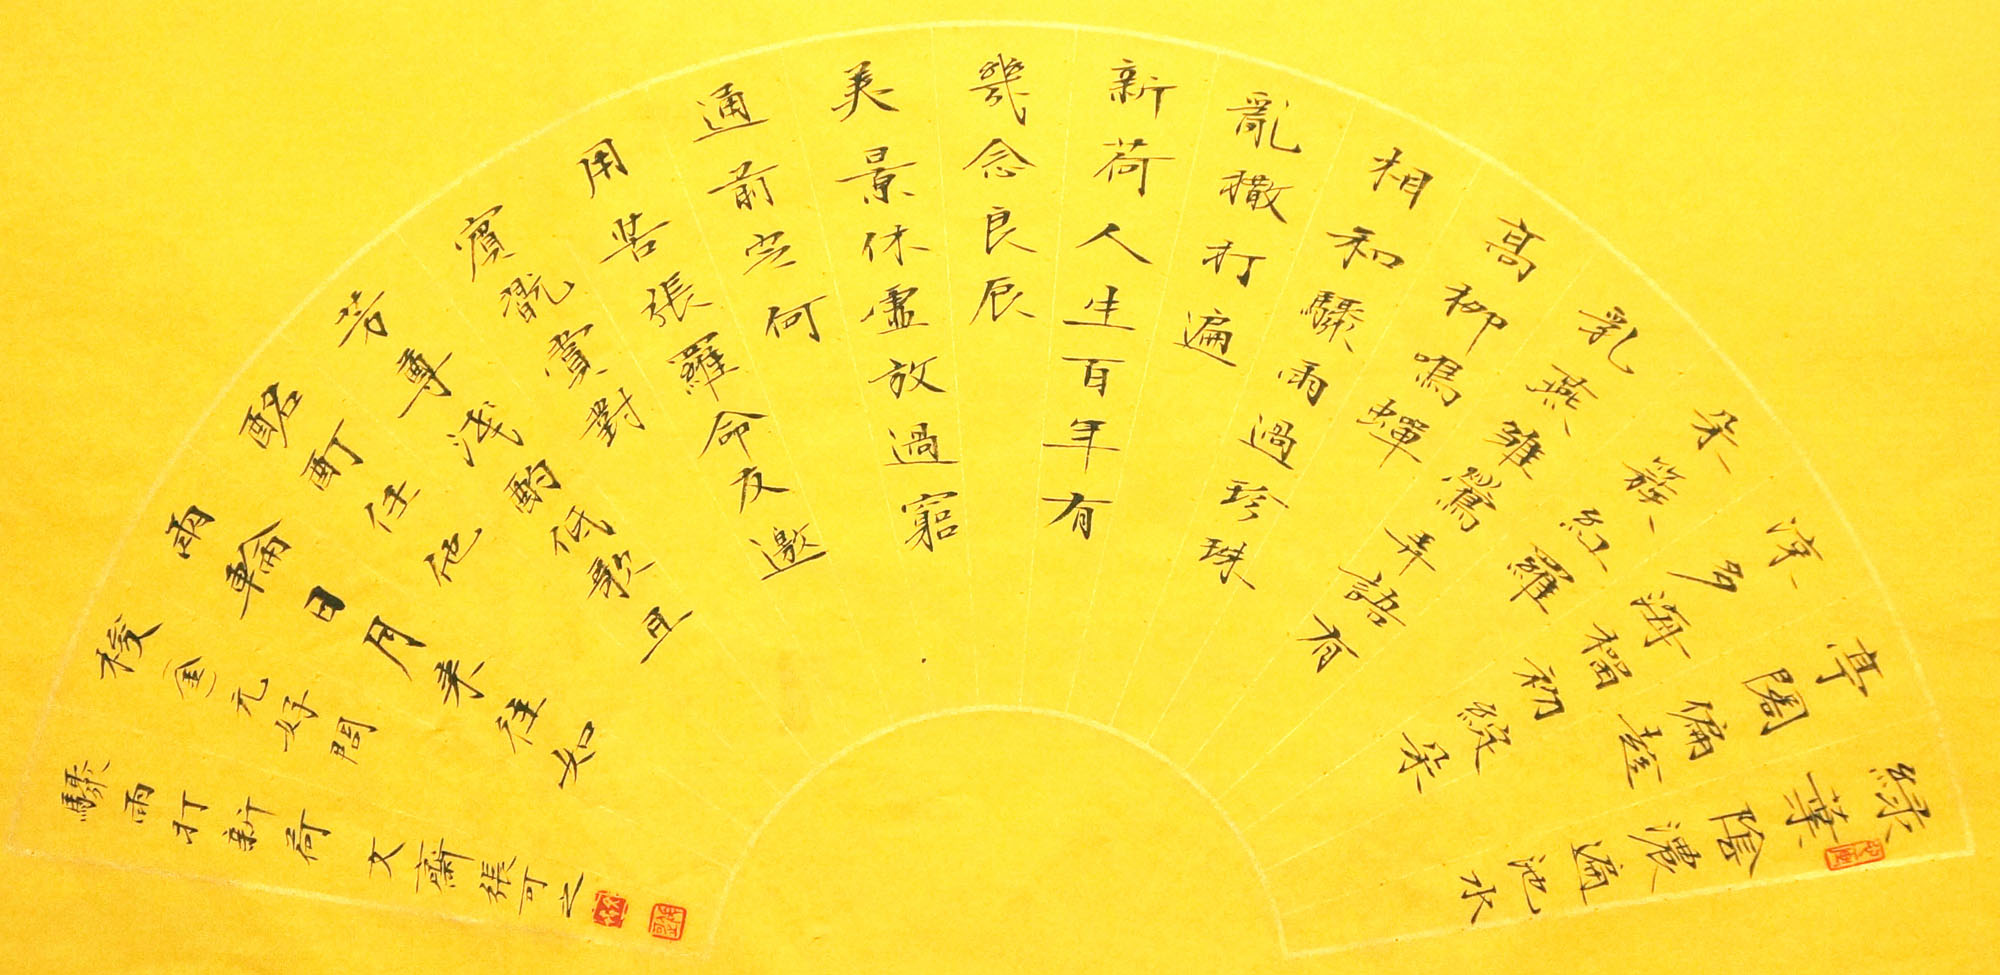 綠葉陰濃遍池水
亭閣偏趁
涼多海榴初綻朵
朵簇紅羅
乳燕雛鶯弄語有
高柳鳴蟬
相和驟雨過珍珠
亂撒打遍
新荷人生百年有
幾念良辰
美景休虛放過窮
通前定何
用苦張羅命友邀
賓翫賞對
芳尊淺酌低歌且
酩酊任他
兩輪日月來往如
梭 金元好問
驟雨打新荷 文齋張可之